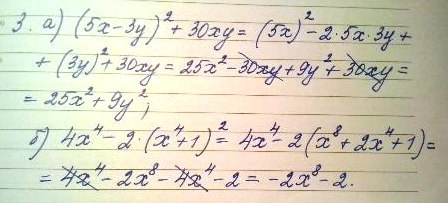 3. а) (5x-3y)² + 30xy = (5x)² - 2·5x·3y +
+ (3y)² + 30xy = 25x² - 30xy + 9y² + 30xy =
= 25x² + 9y²;
б) 4x⁴ - 2·(x⁴+1)² = 4x⁴ - 2(x⁸ + 2x⁴ + 1) =
= 4x⁴ - 2x⁸ - 4x⁴ - 2 = -2x⁸ - 2.